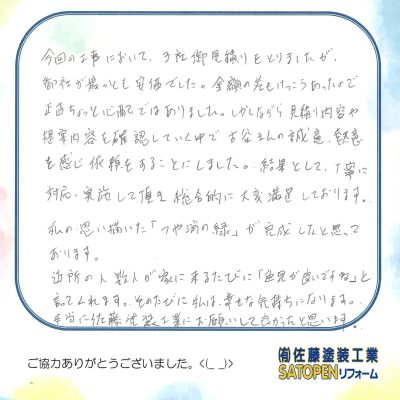 今回の工事において、3社御見積りをとりましたが、
御社が最っとも安価でした。金額の差もけっこうあったので
正直ちょっと心配ではありました。しかしながら見積り内容や
提案内容を確認していく中で古谷さんの誠意、熱意
を感じ依頼をすることにしました。結果として、丁寧に
対応・実施して頂き総合的に大変満足しております。
私の思い描いた「つや消の緑」が完成したと思って
おります。
近所の人数人が家に来るたびに「色見が良いですね」と
言ってくれます。そのたびに私は、幸せな気持ちになります。
本当に佐藤塗装工業にお願いして良かったと思います。
ご協力ありがとうございました。<(_ _)>
㈲佐藤塗装工業
SATOPENリフォーム